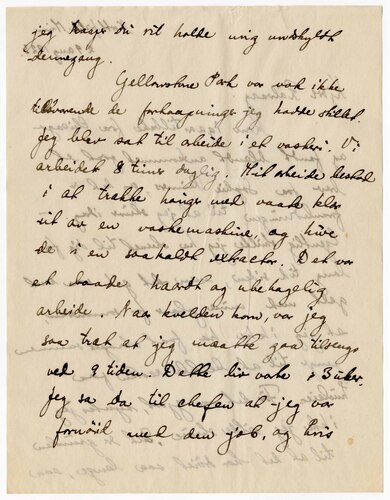 jeg haaper du vil holde mig undskyldt
dennegang.
Yellowstone Park var nok ikke
tilsvarende de forhaapninger jeg hadde stillet.
Jeg blev sat til arbeide i et vaskeri. Vi
arbeidet 8 timer daglig. Mit arbeide bestod
i at trække hauger med vaate klær
ut av en vaskemaskine, og hive
de i en saakaldt extractor. Det var
et baade haardt og ubehagelig
arbeide. Naar kvelden kom, var jeg
saa træt at jeg maatte gaa tilsengs
ved 9 tiden. Dette liv varte i 3 uker.
Jeg sa da til chefen at jeg var
fornøid med den job, og hvis